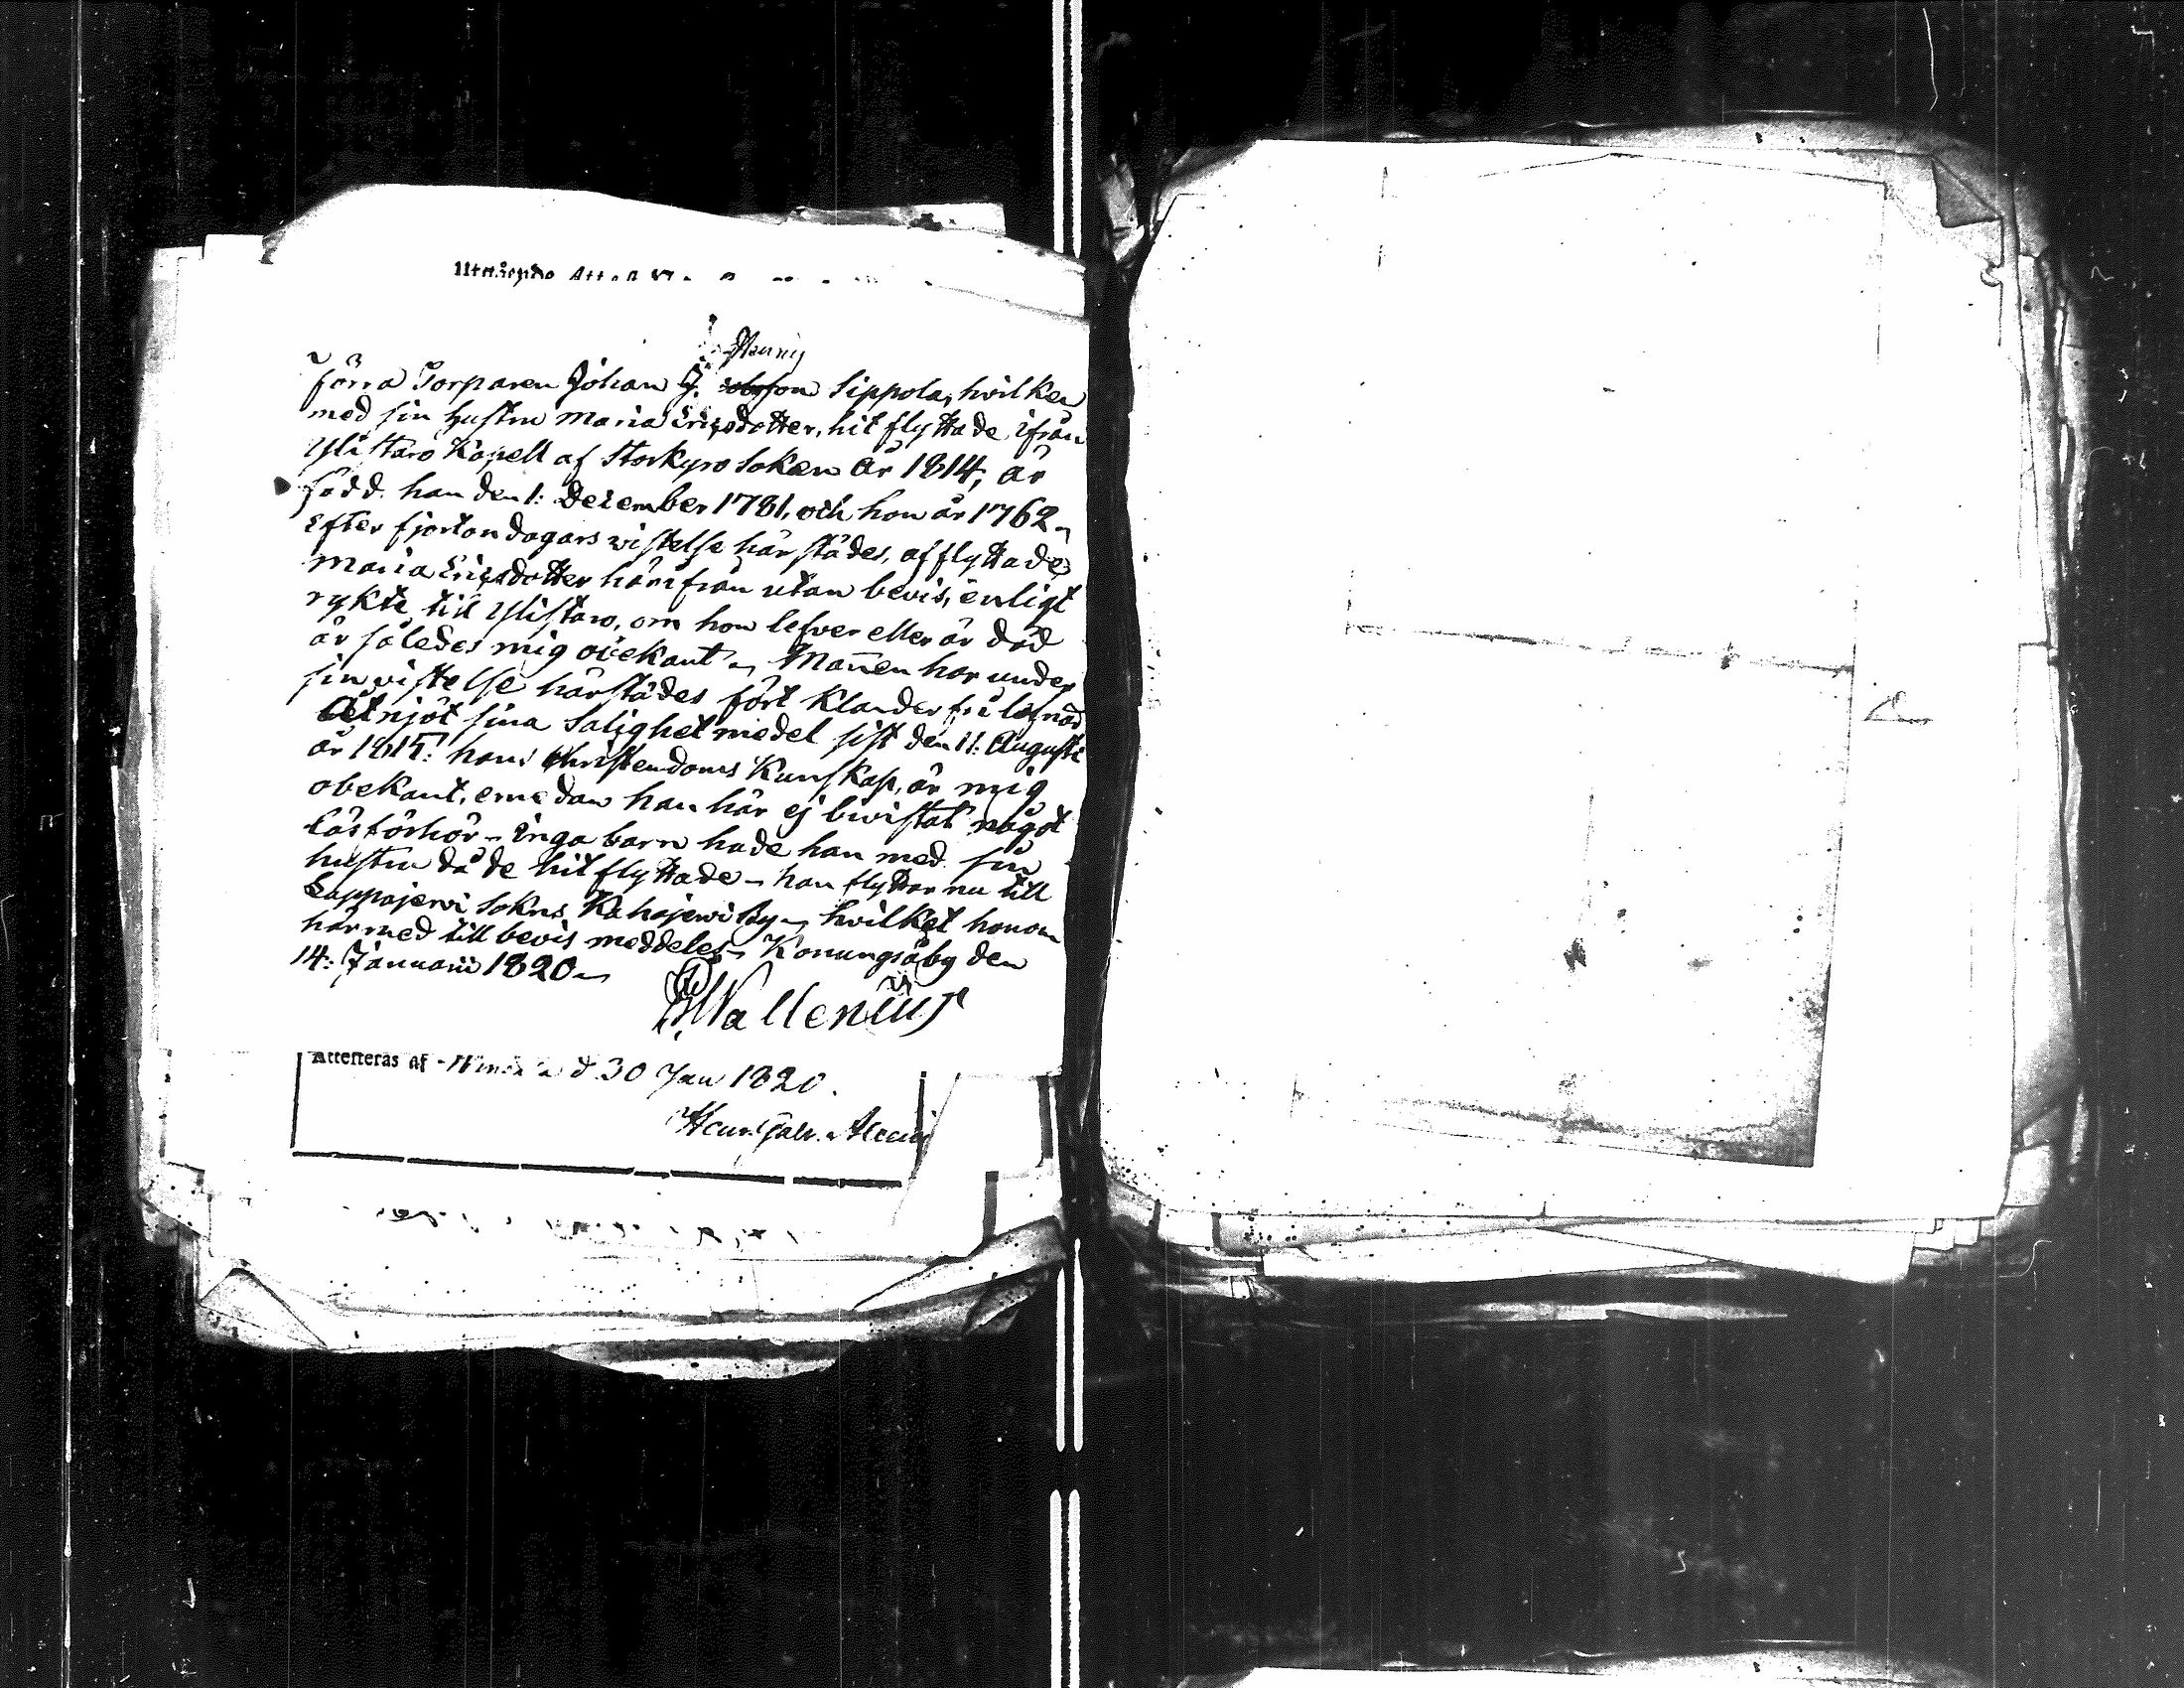 förra Torparen Johan J. Sippola, hvilken
med sin hustru Maria Ericsdotter, hit flyttade ifrån
Ylistaro Kapell af Storkyro Soken År 1814, är
född. han den 1: December 1781, och hon år 1762 ~
Efter fjorton dagars wistelse härstädes, afflyttade
Maria Ericsdotter härifrån utan bevis, enligt
rykte till Ylistaro, om hon lefver eller är död
är således mig obekant ~ Mannen har under
sin vistelse härstädes fört Klanderfri lefnad
Åtnjöt sina Salighet medel sist den 11: Augusti
år 1815: hans Christendoms Kunskap, är mig
obekant, emedan han här ej bivistat något
läsförhör - Inga barn hade han med sin
hustru då de hit flyttade - han flyttar nu till
Lappajervi Sokns Kahajervi By ~ hvilket honom
härmed till bevis meddeles - Konungsåby den
14: Januarii 1820 ~
Wallenius
Attesteras af - d. 30 Jan 1820.